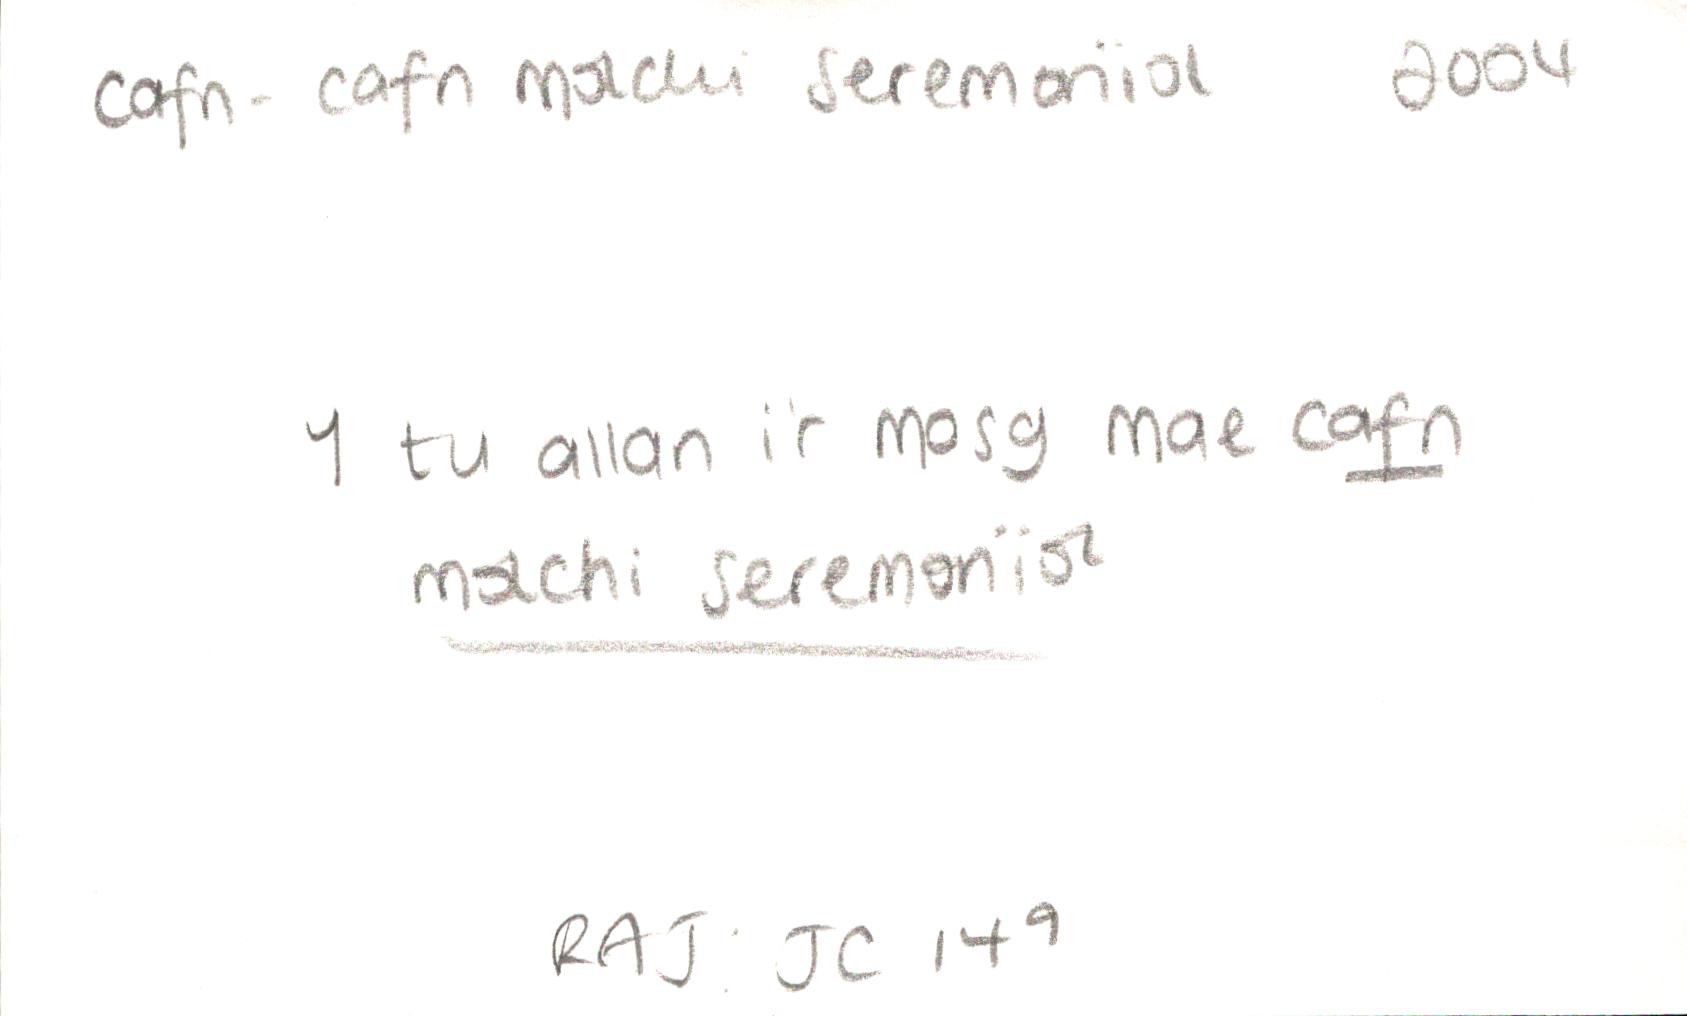 cafn - cafn molchi seremonïol 2004
Y tu allan i'r mosg mae cafn
molchi seremonïol
RAJ: JC 149